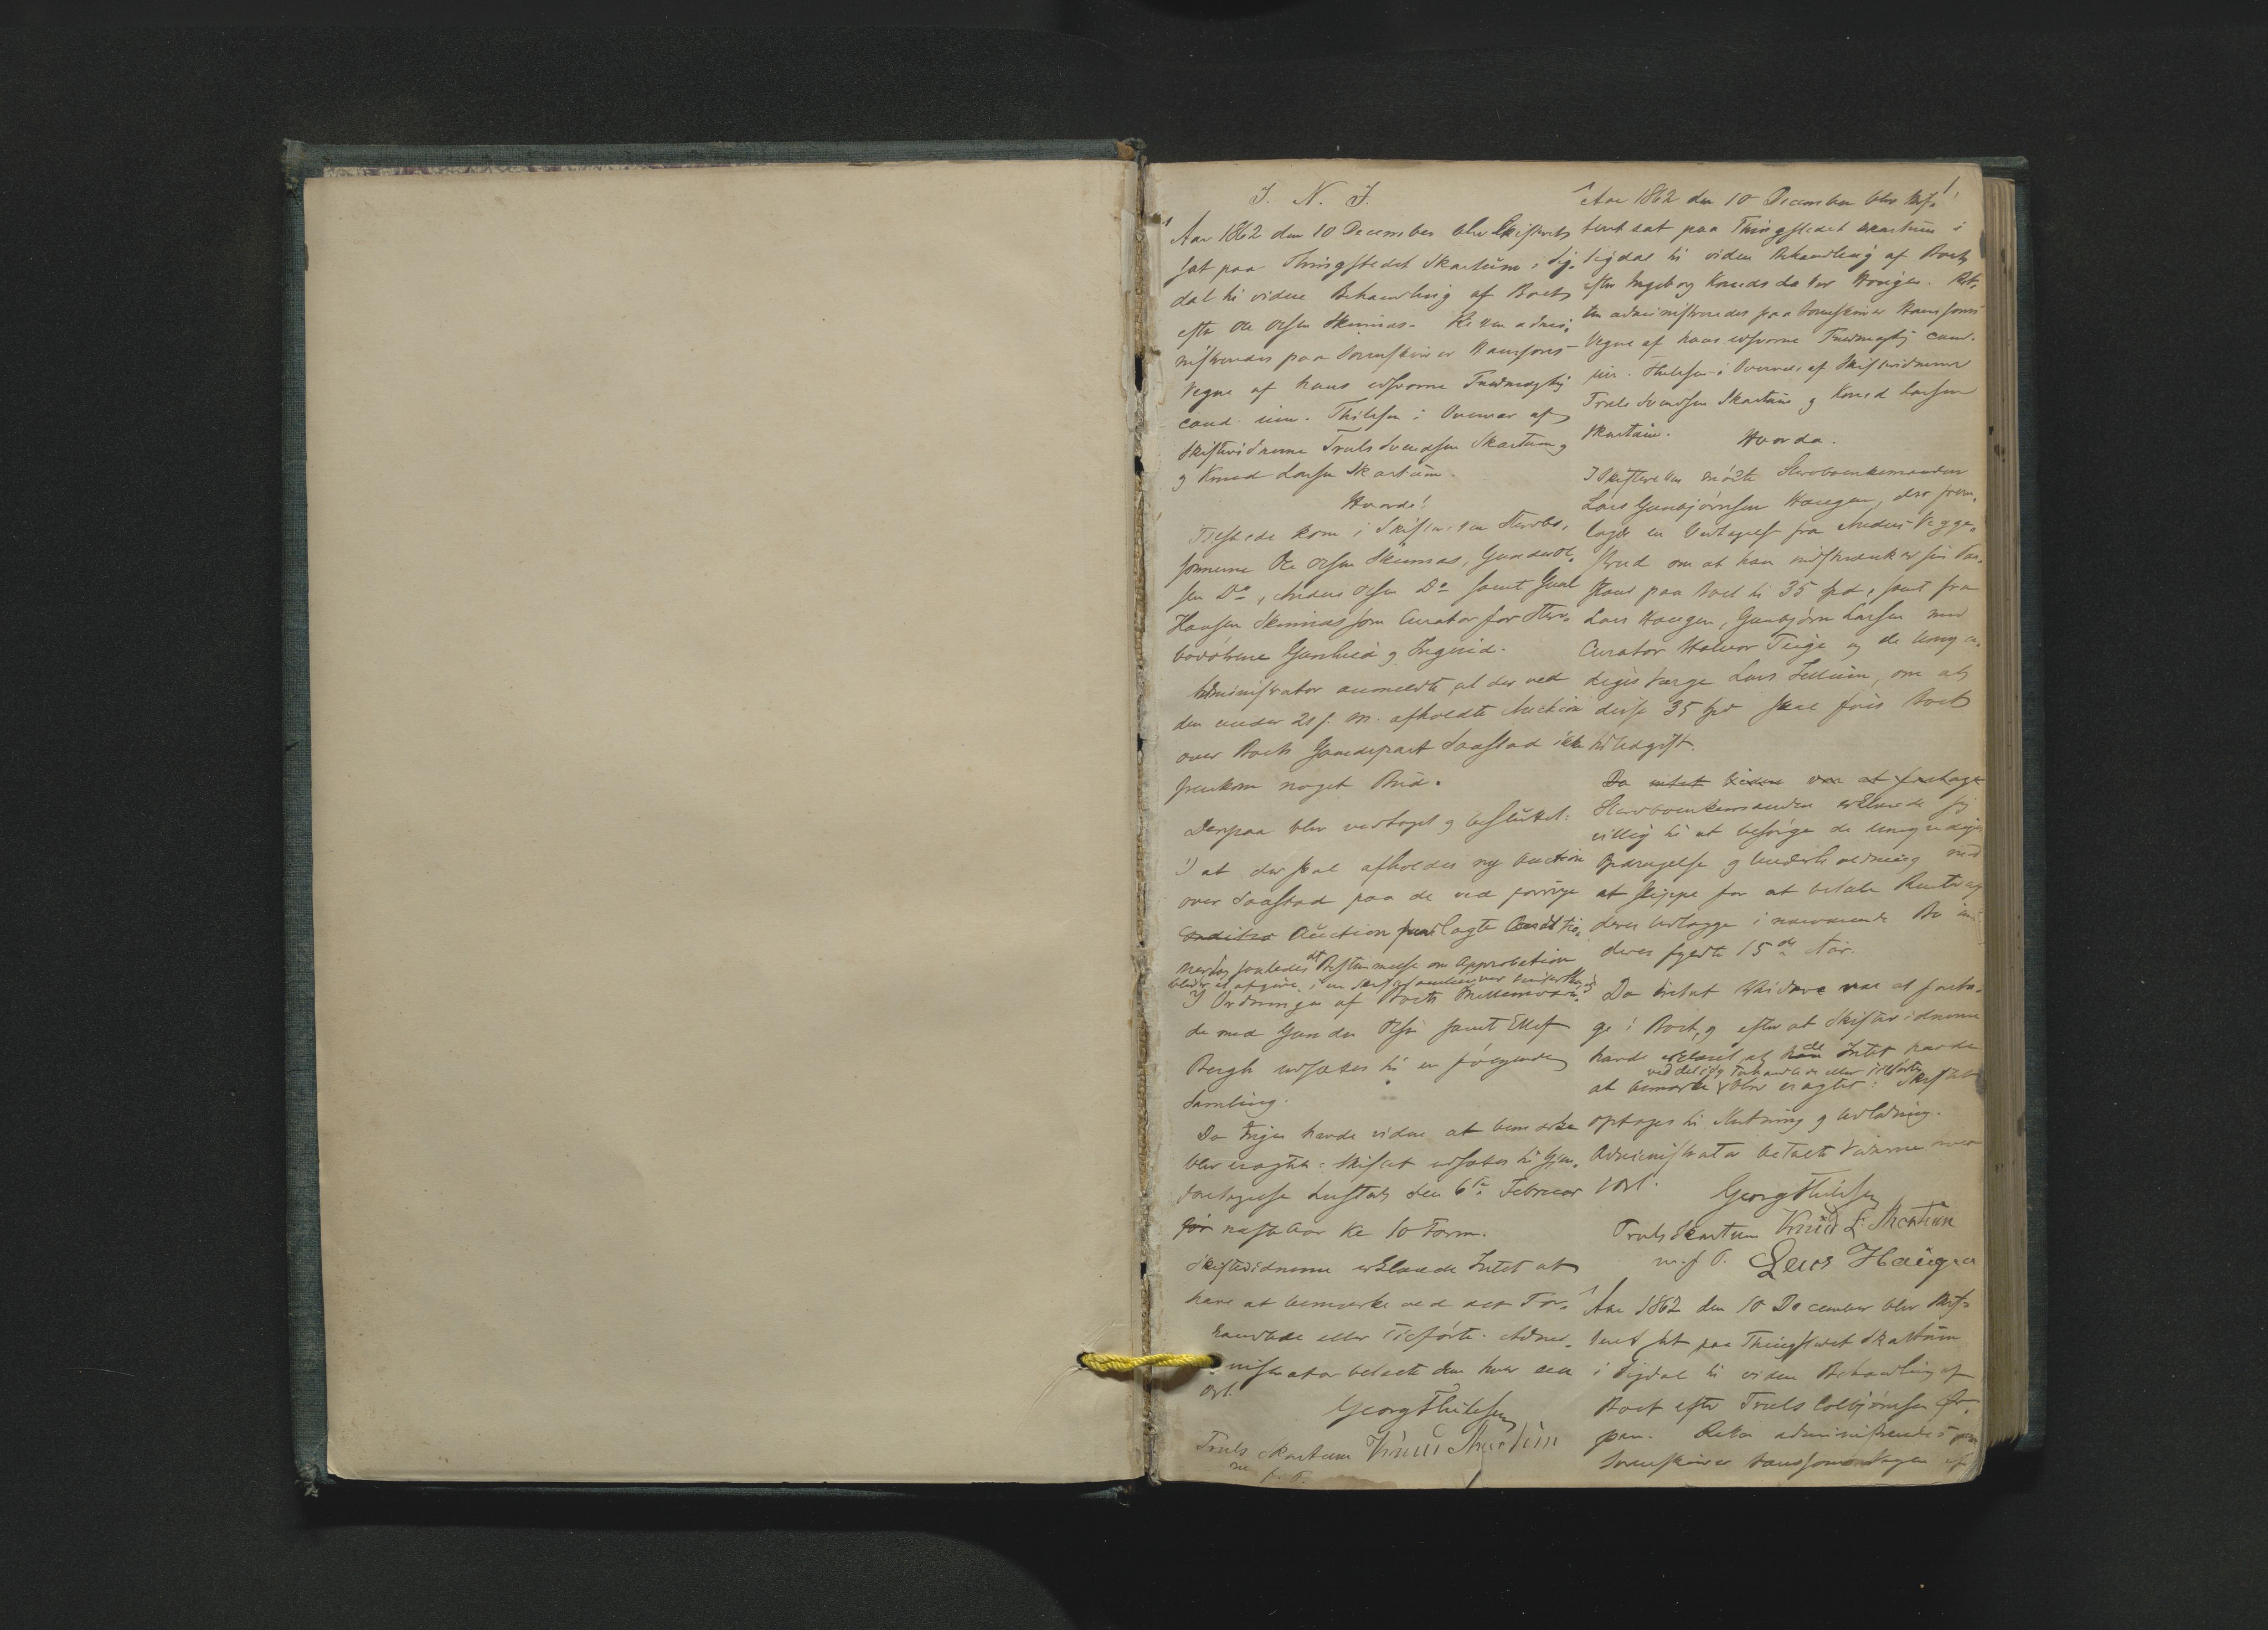 J. N. J.
Aar 1862 den 10 December blev Skifteret
sat paa Thingstedet Skartum i Sig-
dal til videre Behandling af Boet
efter Ole Olsen Skinnæs. Retten admi-
nistreredes paa Sorenskriver Hanssons
Vegne af hans edsvorne Fuldmægtig
cand. jur. Thilesen i Overvær af
Skiftevidnerne Truls Svendsen Skartum
og Knud Larsen Skartum.
Hvorda!
Tilstede kom i Skifteretten Stervbo-
sønnerne Ole Olsen Skinnæs, Gunder Ol-
sen Do, Anders Olsen Do samt Gul
Hansen Skinnæs som Curator for Sterv-
bodøtrene Gunhild og Ingerid.
Administrator anmeldte, at der ved
den under 21 f. M. afholdte Auction
over Boets Gaardepart Saastad ikke
fremkom noget Bud.
Derpaa blev vedtaget og besluttet:
1) at der skal afholdes ny Auction
over Saastad paa de ved forrige
Auction fremlagte Conditio-
ner dog saaledes at Bestemmelse om Approbation
bliver at afgive i en Skiftesamling
2) Ordningen af Boets Mellemværen-
de med Gunder Olsen samt Ellef
Bergh udsættes til en følgende
Samling.
Da Ingen havde videre at bemærke
blev eragtet: Skiftet udsættes til Gjen-
foretagelse Lustad den 6te Februar
næste Aar Kl 10 Form.
Skiftevidnerne erklærede Intet at
have at bemærke ved det For-
handlede eller Tilførte. Admi-
nistrator betalte dem hver een
Ort.
Georg Thilesen
Truls Skartum Knud Skartum
m. f. P.
1.
Aar 1862 den 10 December blev Skif-
teret sat paa Thingstedet Skartum i
Sigdal til videre Behandling af Boet
efter Ingeborg Knudsdatter Haugen. Ret-
ten administreredes paa Sorenskriver Hanssons
Vegne af hans edsvorne Fuldmægtig cand.
jur. Thilesen i Overvær af Skiftevidnerne
Truls Svendsen Skartum og Knud Larsen
Skartum.
Hvorda.
I Skifteretten mødte Stervboenkemanden
Lars Gunbjørnsen Haugen, der frem-
lagde en Vedtagelse fra Anders Vegge-
srud om at han indskrænker sin For-
dring paa Boet til 35 Spd, samt fra
Lars Haugen, Gunbjørn Larsen med
Curator Halvor Teige og de Umyn-
diges Værge Lars Jellum, om at
disse 35 Spd skal føres Boet
til Udgift.
Da intet videre var at foretage
Stervboenkemanden erklærede sig
villig til at besørge de Umyndiges
Opdragelse og Underholdning mod
at slippe for at betale Renter af
deres Udlægge i nærværende Bo indtil
deres fyldte 15de Aar.
Da Intet Videre var at foreta-
ge i Boet, og efter at Skiftevidnerne
havde erklæret, at de Intet havde
at bemærke ved det Forhandlede eller Tilførte, blev eragtet: Skiftet
optages til Slutning og Udlodning.
Administrator betalte Vidnerne hver
1 Ort.
Georg Thilesen
Truls Skartum Knud L. Skartum
m. f. P. Lars Haugen
Aar 1862 den 10 December blev Skif-
teret sat paa Thingstedet Skartum
i Sigdal til videre Behandling af
Boet efter Truls Colbjørnsen
Retten administreredes paa
Sorenskriver Hanssons Vegne af